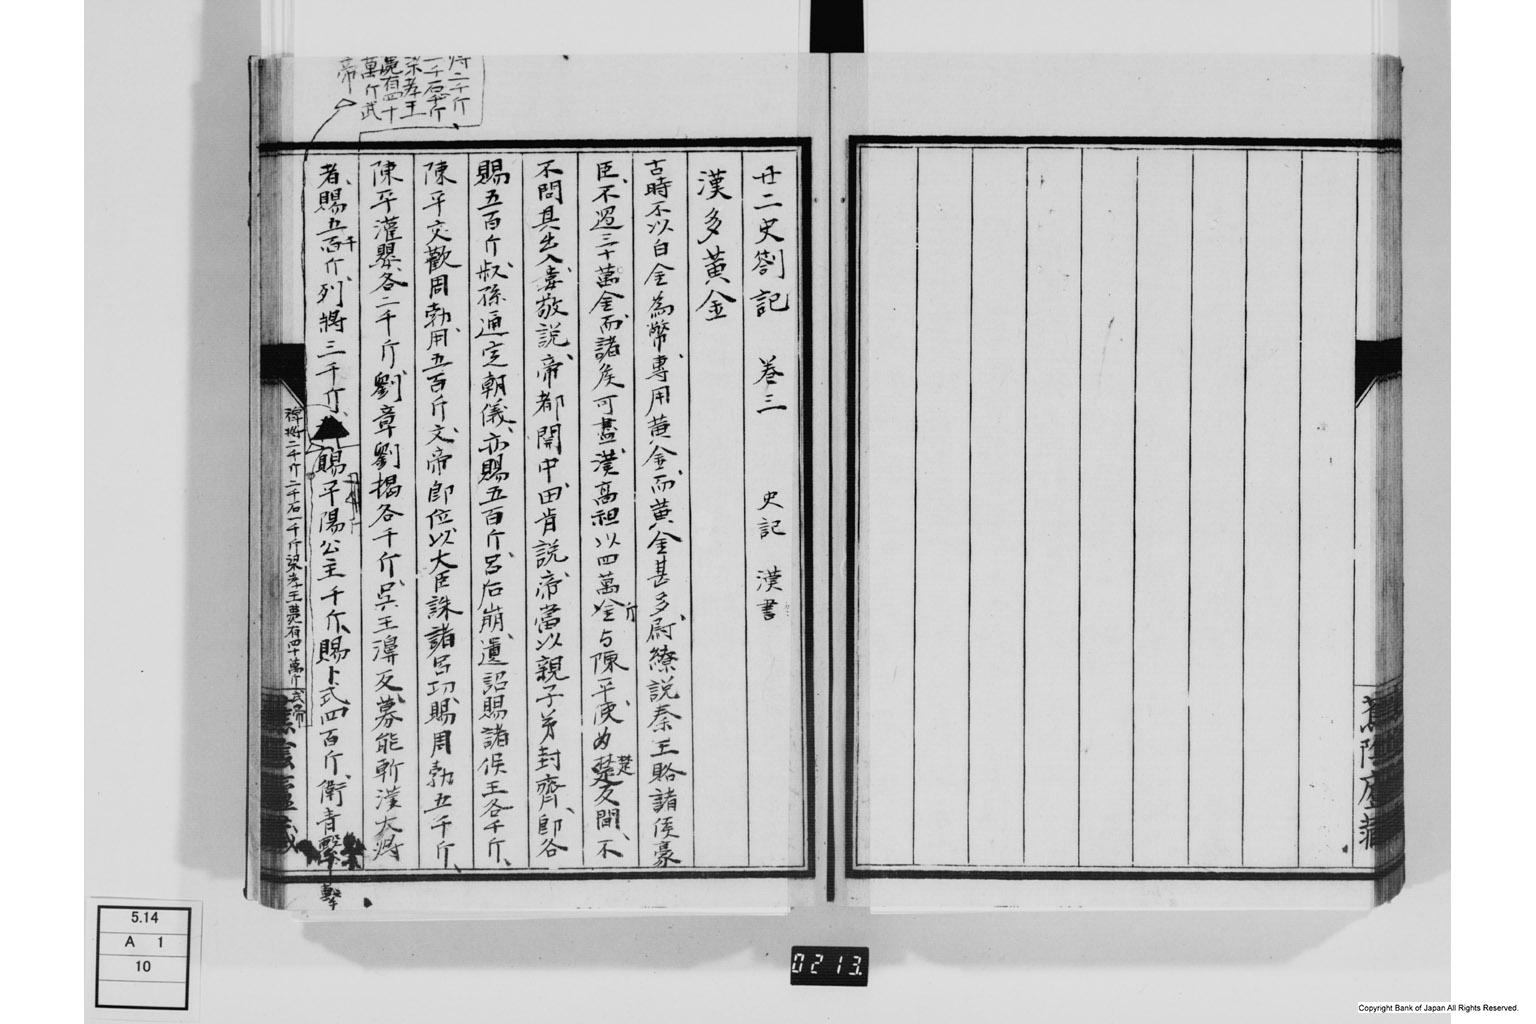 廿二史劄記　巻三　史記　漢書
漢多黄金
古時不以白金為幣、専用黄金、而黄金甚多、尉繚説秦王賂諸侯豪
臣、不過三十萬金、而諸侯可盡、漢高祖以四萬斤与陳平、使為楚反間、不
不問其出入、婁敬説帝都關中、田肯説帝當以親子弟封齊、即各
賜五百斤、叔孫通定朝儀、亦賜五百斤、呂后崩、遺詔賜諸侯王各千斤、
陳平交歡周勃、用五百斤、文帝即位、以大臣誅諸呂功、賜周勃五千斤、
陳平灌嬰各二千斤、劉章劉揭各千斤、呉王濞反、募能斬漢大将
者、賜五千斤、列将三千斤、
賜平陽公主千斤、賜卜式四百斤、衛青擊
裨将二千斤二千石一千斤梁孝王薨有四十萬斤武帝
将二千斤
二千石千斤
梁孝王
薨有四十
萬斤武
帝
5.14
A 1
10
0213.
Copyright Bank of Japan All Rights Reserved.